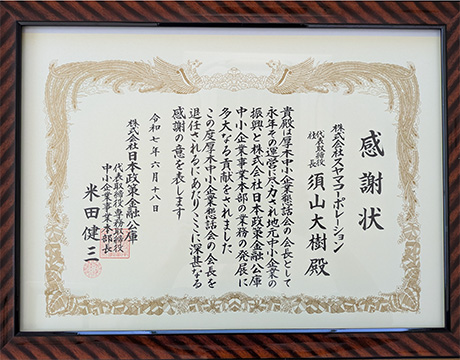 感謝状
株式会社スヤマコーポレーション
代表取締役
社長 須山大樹 殿
貴殿は厚木中小企業懇話会の会長として
永年その運営に尽力され地元中小企業の
振興と株式会社日本政策金融公庫
中小企業事業本部の業務の発展に
多大なる貢献をされました
この度厚木中小企業懇話会の会長を
退任されるにあたりここに深甚なる
感謝の意を表します
令和七年六月十八日
株式会社日本政策金融公庫
代表取締役専務取締役
中小企業事業本部長
米田健三